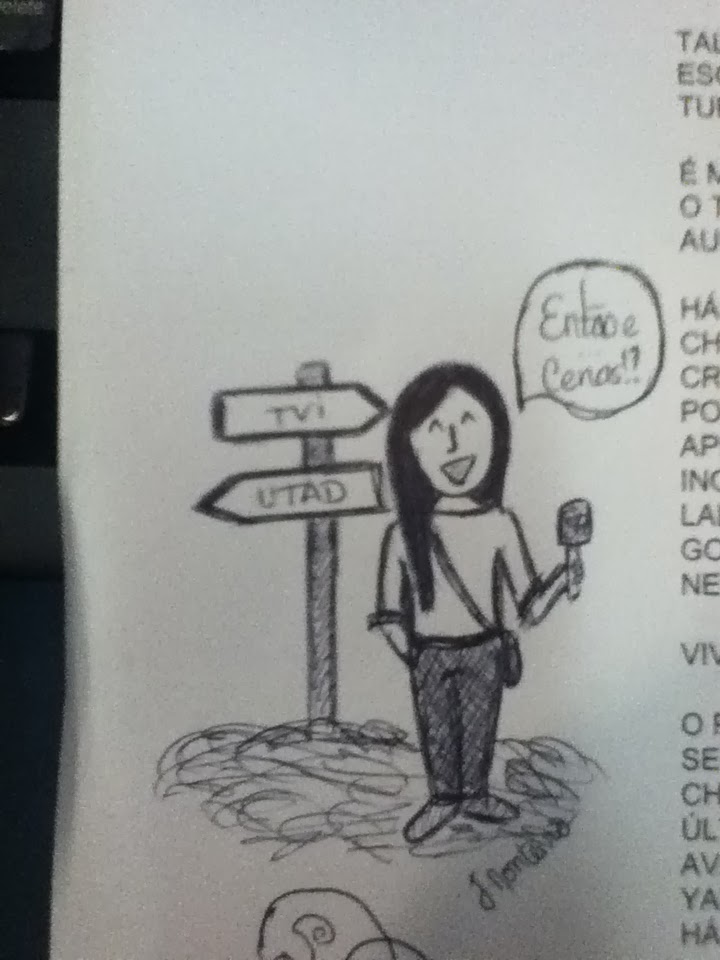 elete
TAL
ESC
TUD
É M
O T
AU
HÁ
CH
CR
PO
AP
INC
LAI
GO
NE
VIV
O F
SE
CH
ÚL
AV
YA
HÁ
Então e
Cenas!?
TVi
UTAD